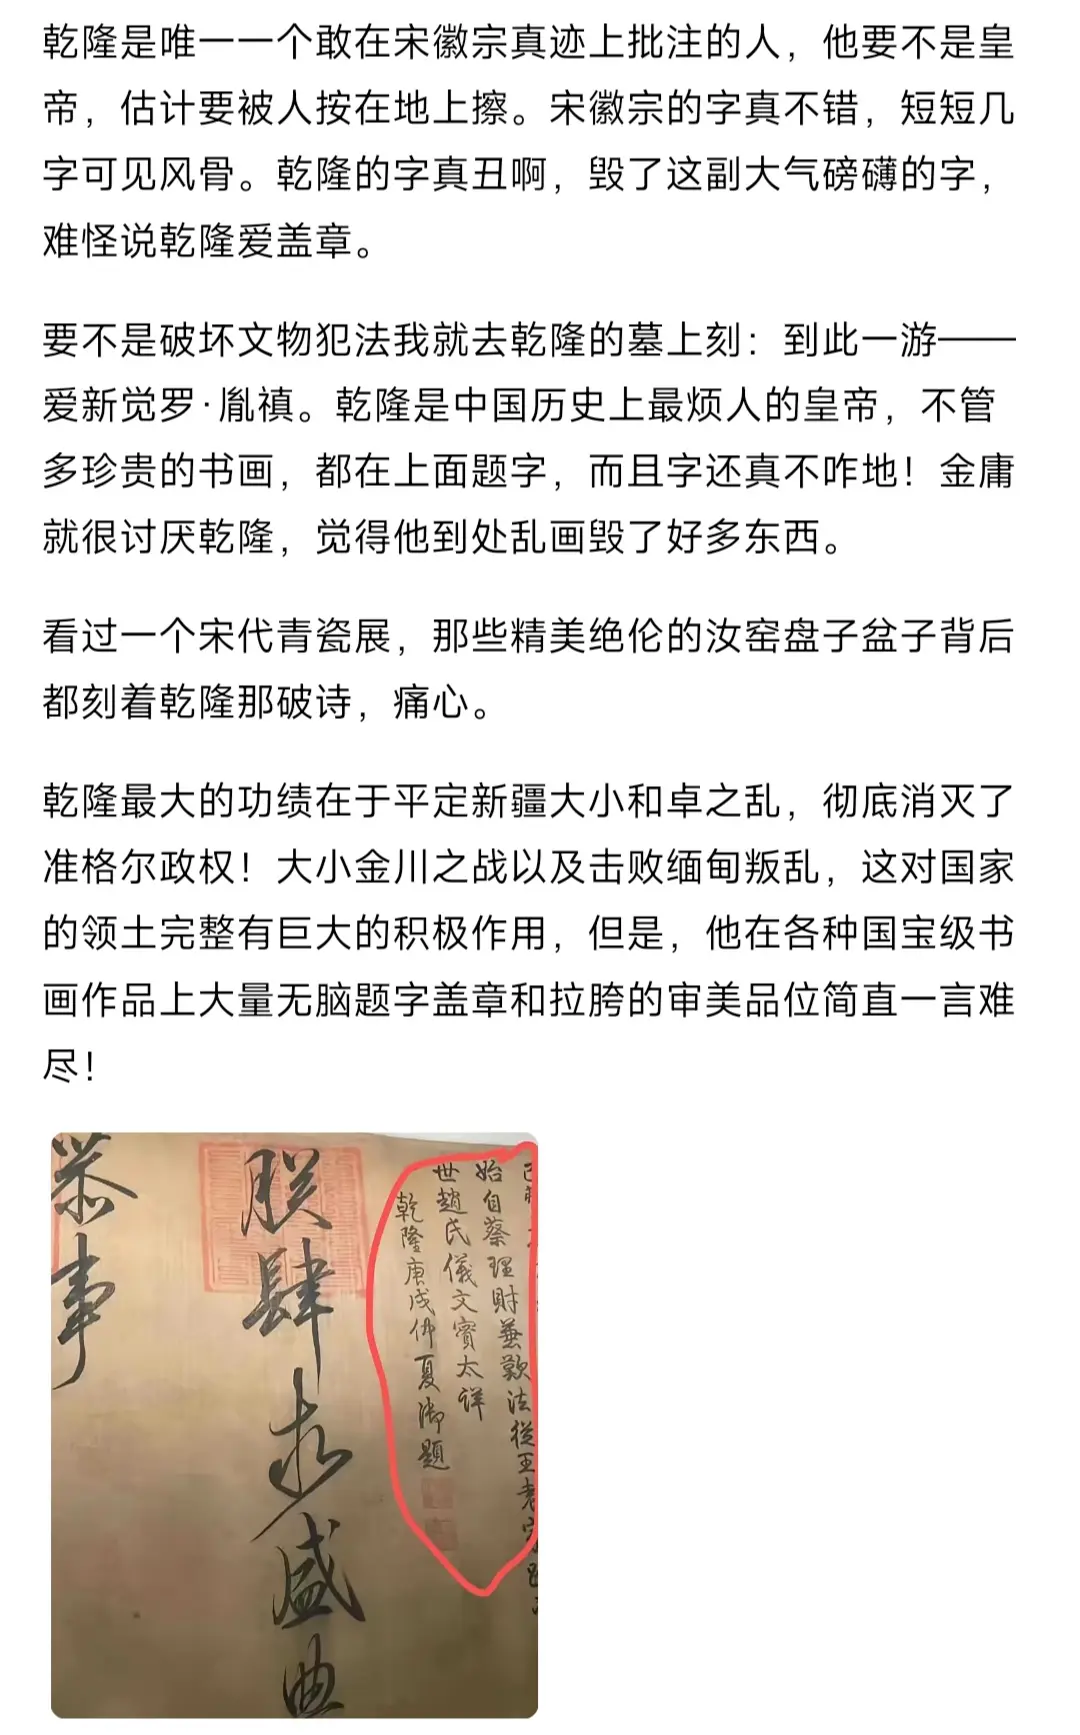 乾隆是唯一一个敢在宋徽宗真迹上批注的人，他要不是皇
帝，估计要被人按在地上擦。宋徽宗的字真不错，短短几
字可见风骨。乾隆的字真丑啊，毁了这副大气磅礴的字，
难怪说乾隆爱盖章。
要不是破坏文物犯法我就去乾隆的墓上刻：到此一游——
爱新觉罗·胤禛。乾隆是中国历史上最烦人的皇帝，不管
多珍贵的书画，都在上面题字，而且字还真不咋地！金庸
就很讨厌乾隆，觉得他到处乱画毁了好多东西。
看过一个宋代青瓷展，那些精美绝伦的汝窑盘子盆子背后
都刻着乾隆那破诗，痛心。
乾隆最大的功绩在于平定新疆大小和卓之乱，彻底消灭了
准格尔政权！大小金川之战以及击败缅甸叛乱，这对国家
的领土完整有巨大的积极作用，但是，他在各种国宝级书
画作品上大量无脑题字盖章和拉胯的审美品位简直一言难
尽！
始自蔡理財蓋歎法從王老
世趙氏儀文賓太詳
乾隆庚戌仲夏御題
朕肆求盛典
事